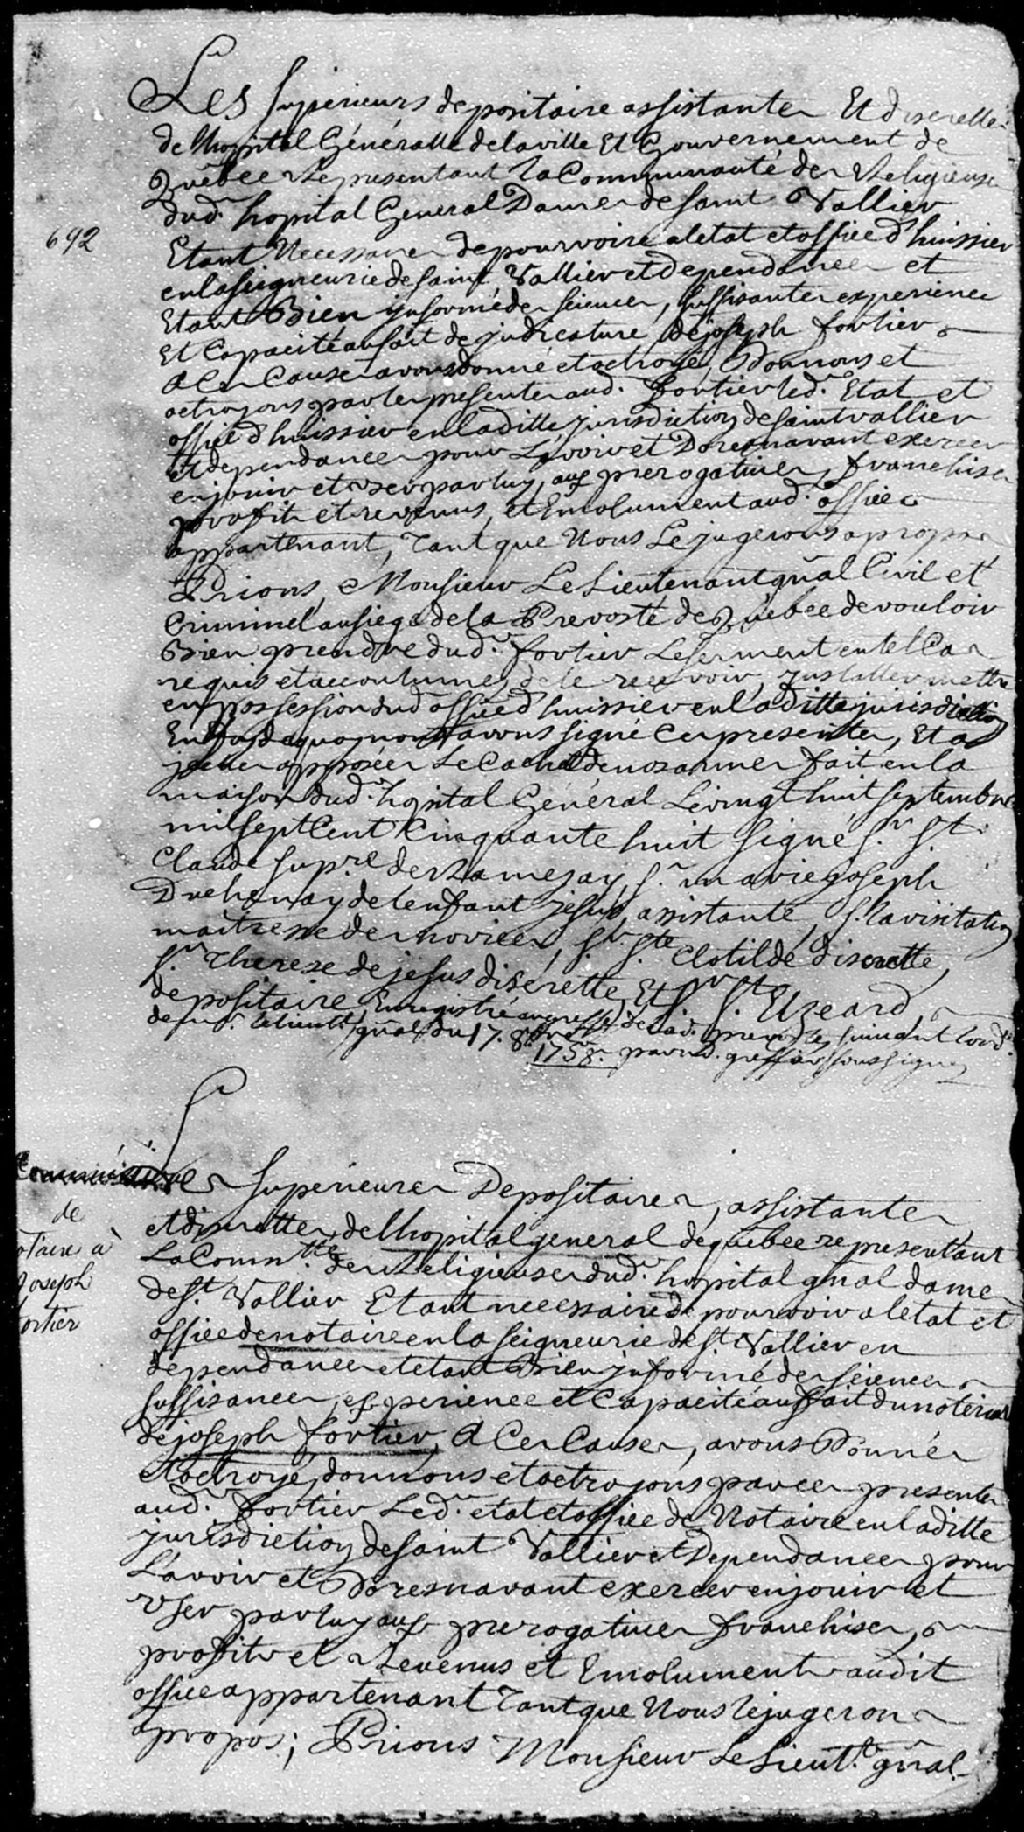 Les Superieurs depositaire assistante Et discrette
de lhopital Généralle de la ville Et Gouvernement de
Quebec Representant La Communauté des Religieuse
dud. hopital General Dames de saint Vallier
692
Etant Necessaire de pourvoire a letat et office d'huissier
en la seigneurie de saint Vallier et dependances et
Etant Bien informé des sciences, suffisante experience
Et Capacité au fait de judicature, de joseph fortier
A Ces Causes avons donné et octroié, Donnons et
octroyons par les presente aud. fortier led. Etat et
office d'huissier en la ditte jurisdiction de saint vallier
Et dependances pour L'avoir et Doresnavant exercer
en jouir et user par luy, aux prerogatives, franchises
profits et revenus, et Emolument aud. office
appartenant, Tant que Nous Le jugerons a propos
Prions, Monsieur Le Lieutenant gnāl Civil et
Criminel au siege de la Prevosté de Quebec de vouloir
Bien prendre dud. fortier Le serment en tel Cas
requis et accoutumé, de le recevoir, Installer mettre
en possession dud. office d'huissier en la ditte jurisdiction
En foy de quoy nous avons signé Ces presente, Et a
icelles apposées Le Cachet de nos armes fait en la
maison dud. hopital Général Le vingt huit septembre
mil sept Cent Cinquante huit signé Sr. St.
Claude supre. de Ramezay, Sr. marie joseph
Duchenay de lenfant jesus, assistante, S. la visitation
maitresse des novices, Sr. Ste Clotilde discrette,
Sr. Therese de jesus discrette, Et Sr. St. Elzeard,
depositaire, Enregistré au greffe de lad. prevosté, suivant lord.
de mr. le lieutt. gnāl du 17. 8bre
1758. par nd. greffier soussigné
Commission
de
otaire a
Joseph
ortier
Les Superieures Depositaires, assistante
et discrettes, de Lhopital general de quebec representant
La Commtté. des Religieuses dud. hopital gnāl dames
de St. Vallier Etant necessaire de pourvoir a letat et
office de notaire en la seigneurie de St. Vallier en
dependances et etant Bien informé des sciences
suffisances, experience et Capacité au fait du notériat
de joseph fortier, A Ces Causes, avons Donnés
et octroyé, donnons et octroyons par ces presente
aud. fortier Led. etat et office de Notaire en la ditte
jurisdiction de saint Vallier et Dependances pour
L'avoir et Doresnavant exercer en jouir et
User par luy aux prerogatives franchises,
profits et Revenus et Emoluments audit
office appartenant Tant que Nous le jugerons
a propos; Prions Monsieur Le Lieutt. gnāl.